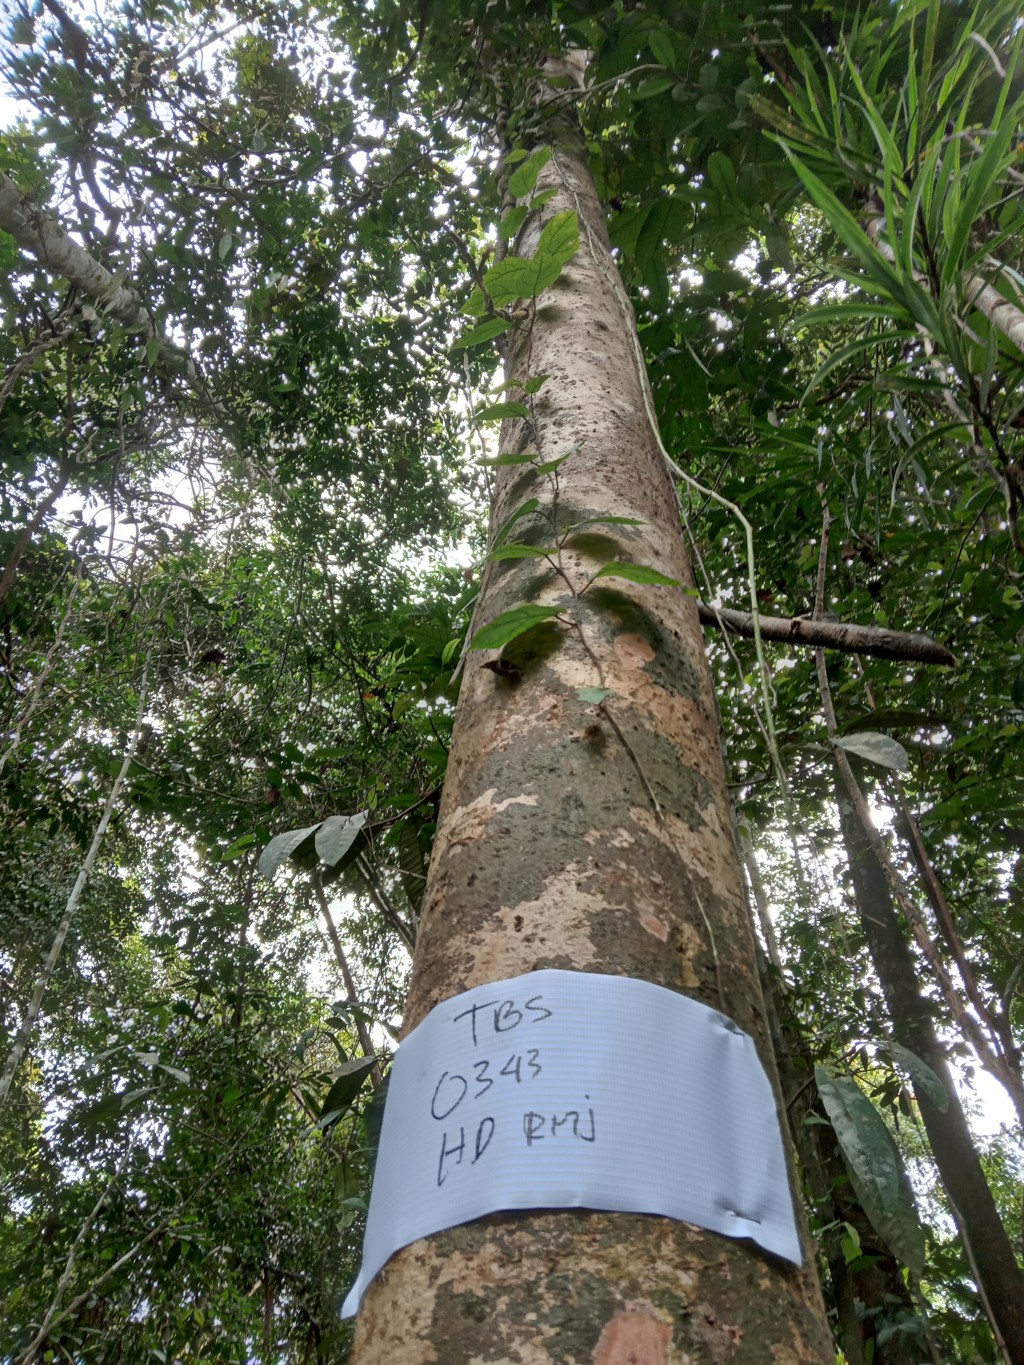 TBS
0343
HD RMj